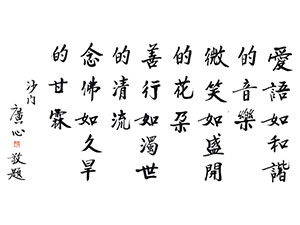 愛語如和諧
的音樂
微笑如盛開
的花朵
善行如濁世
的清流
念佛如久旱
的甘霖
沙门
廣心敬題